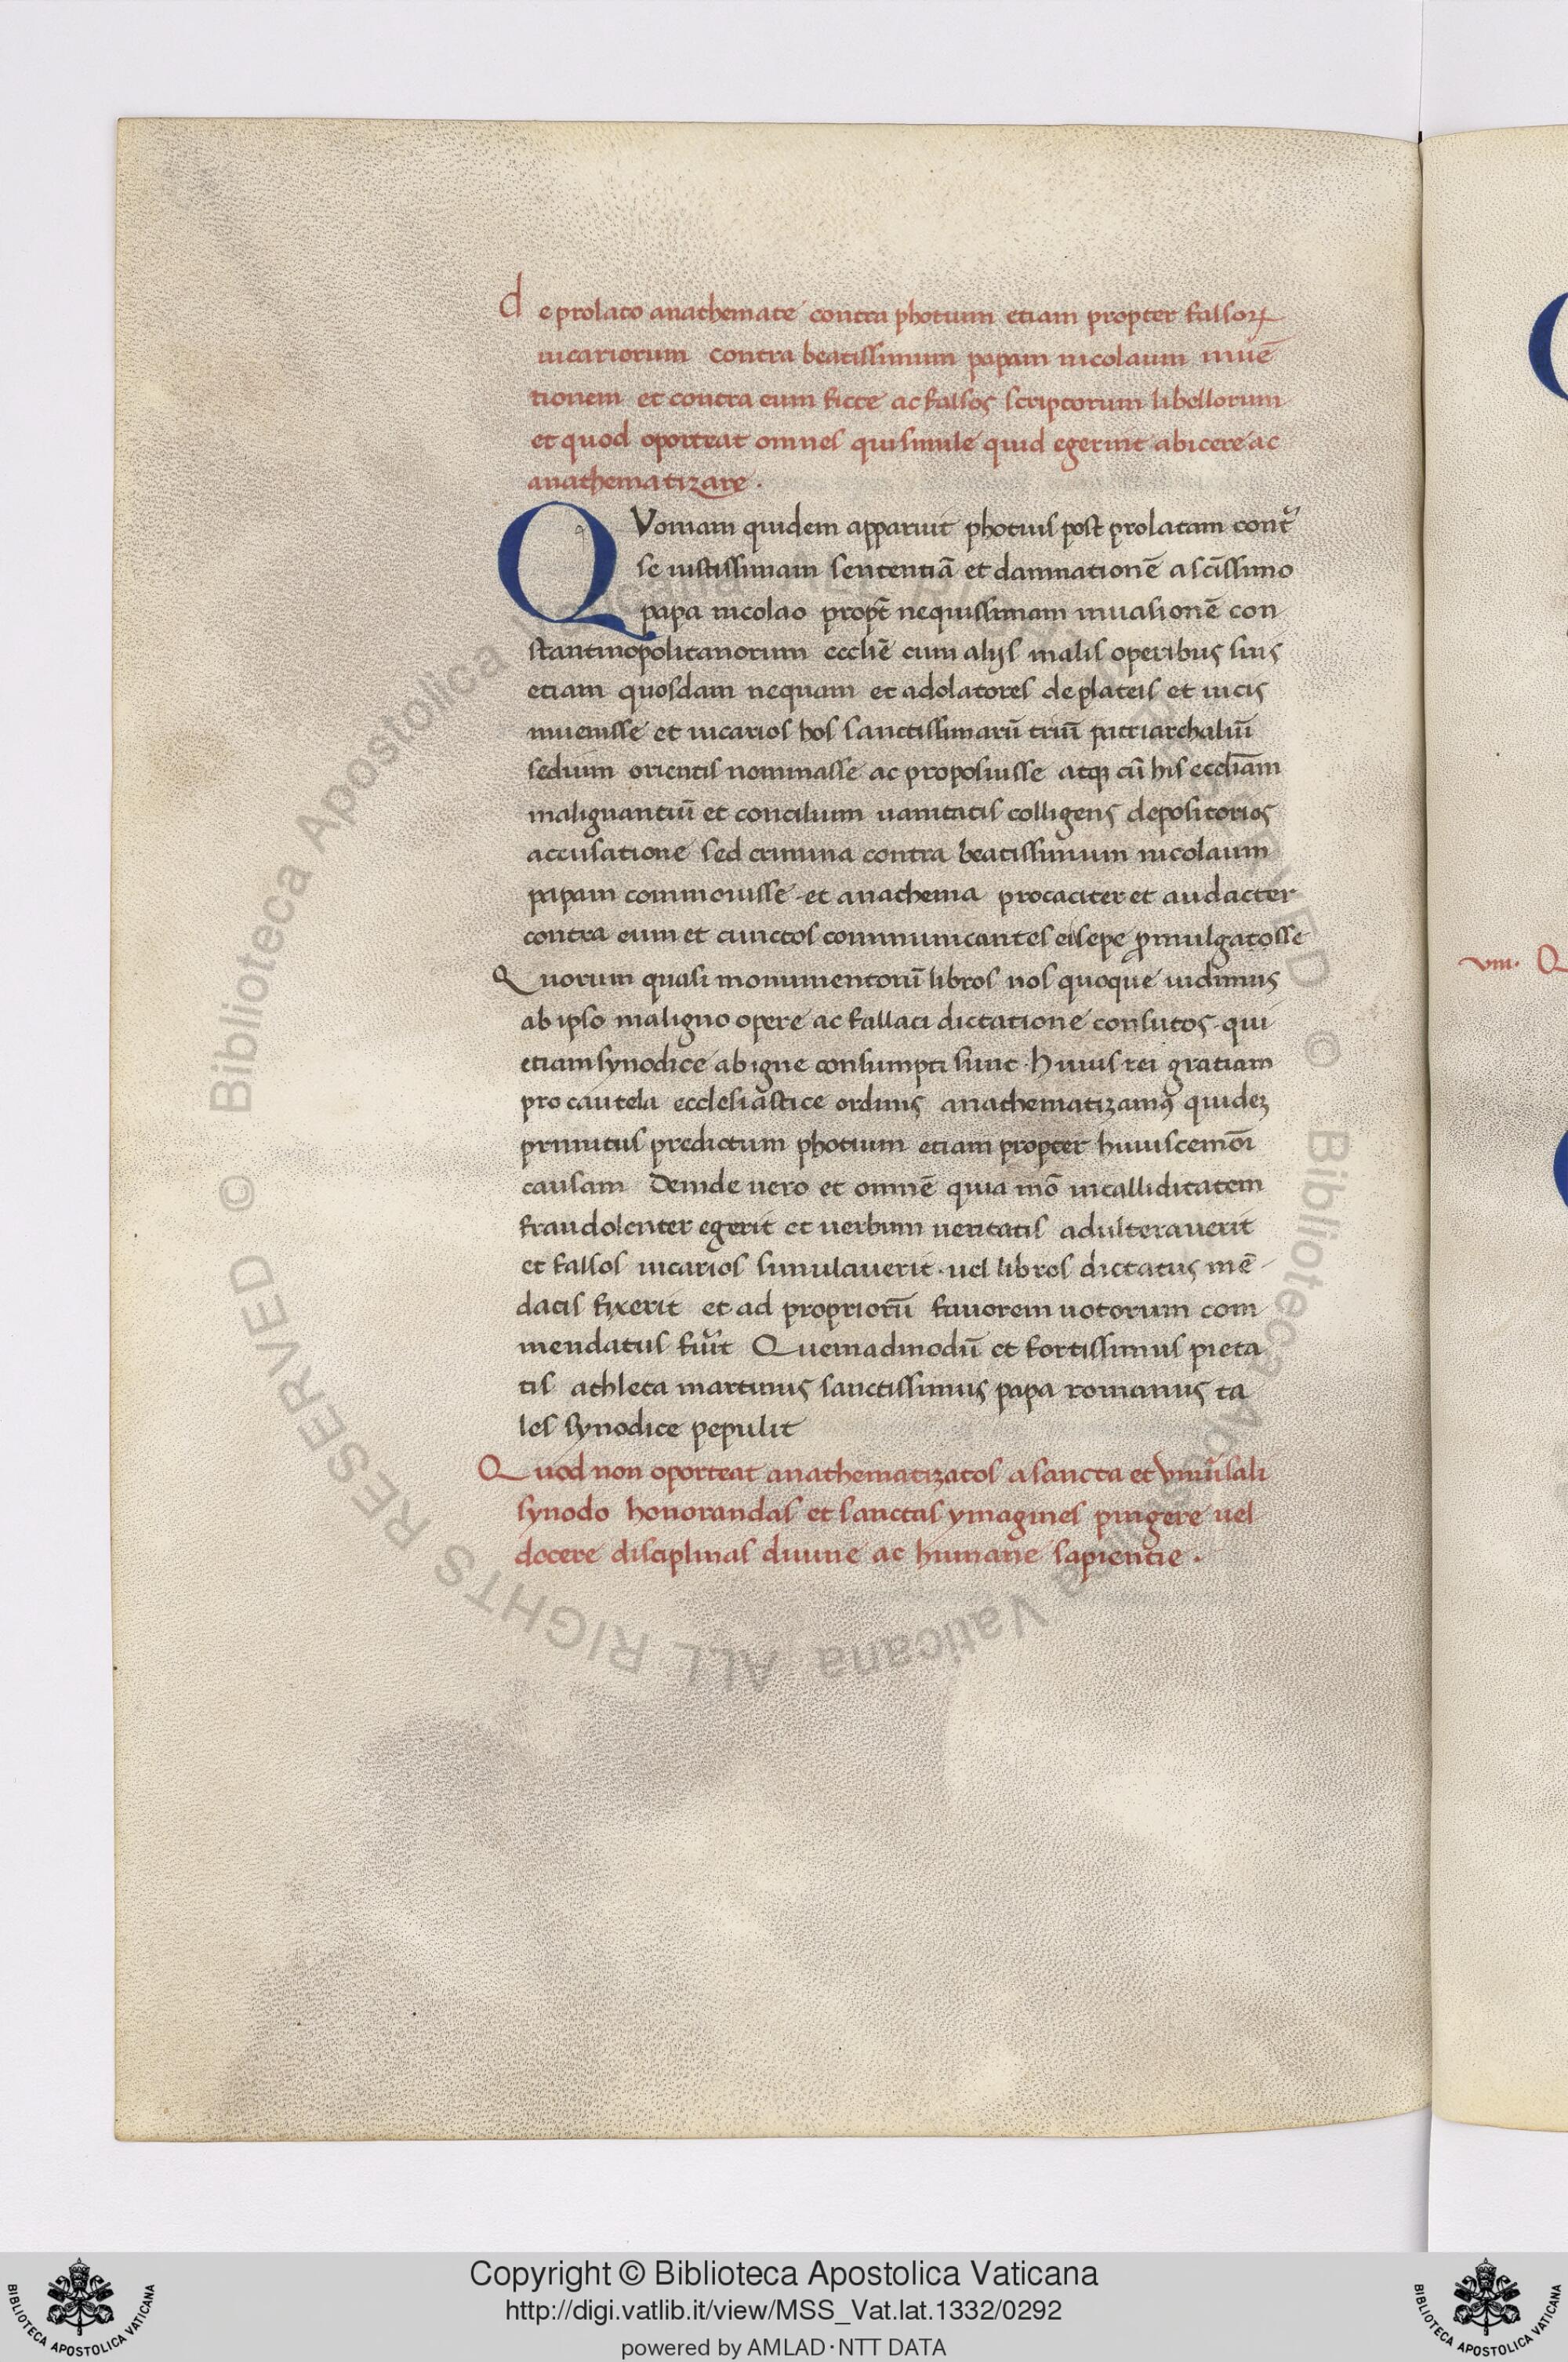 de prolato anathemate contra photium etiam propter falsoꝝ
uicariorum contra beatissimum papam nicolaum inuē
tionem et contra eum ficte ac falsos scriptorum libellorum
et quod oporteat omnes qui simile quid egerint abicere ac
anathematizare.
QVoniam quidem apparuit photius post prolatam contᷓ
se iustissimam sententiā et damnationē a scīssimo
papa nicolao propt̄ nequissimam inuasionē con
stantinopolitanorum eccliē cum alijs malis operibus suis
etiam quosdam nequam et adolatores de plateis et uicis
inuenisse et uicarios hos sanctissimarū triū patriarchaliū
sedium orientis nominasse ac proposuisse atqꝫ cū his eccliam
malignantiū et concilium uanitatis colligens depositorios
accusatione sed crimina contra beatissimum nicolaum
papam commouisse et anathema procaciter et audacter
contra eum et cunctos communicantes ei sepe ꝓmulgatosse
Quorum quasi monumentorū libros nos quoque uidimus
ab ipso maligno opere ac fallaci dictatione consutos. qui
etiam synodice ab igne consumpti sunt. Huius rei gratiam
pro cautela ecclesiastice ordinis anathematizamꝰ quideꝫ
primitus predictum photium etiam propter huiuscemōi
causam Deinde uero et omnē quia mō in calliditatem
fraudolenter egerit et uerbum ueritatis adulterauerit
et falsos uicarios simulauerit. uel libros dictatus mē
dacis fixerit et ad propriorū fauorem uotorum com
mendatus fu͛it Quemadmodū et fortissimus pieta
tis athleta martinus sanctissimus papa romanus ta
les synodice pepulit
Quod non oporteat anathematizatos a sancta et vniu͛sali
synodo honorandas et sanctas ymagines pingere uel
docere disciplinas diuine ac humane sapientie.
viii. Q
© Biblioteca Apostolica Vaticana ALL RIGHTS RESERVED © Biblioteca Apostolica Vaticana ALL RIGHTS RESERVED
Copyright © Biblioteca Apostolica Vaticana
http://digi.vatlib.it/view/MSS_Vat.lat.1332/0292
powered by AMLAD·NTT DATA
BIBLIOTECA APOSTOLICA VATICANA
BIBLIOTECA APOSTOLICA VATICANA